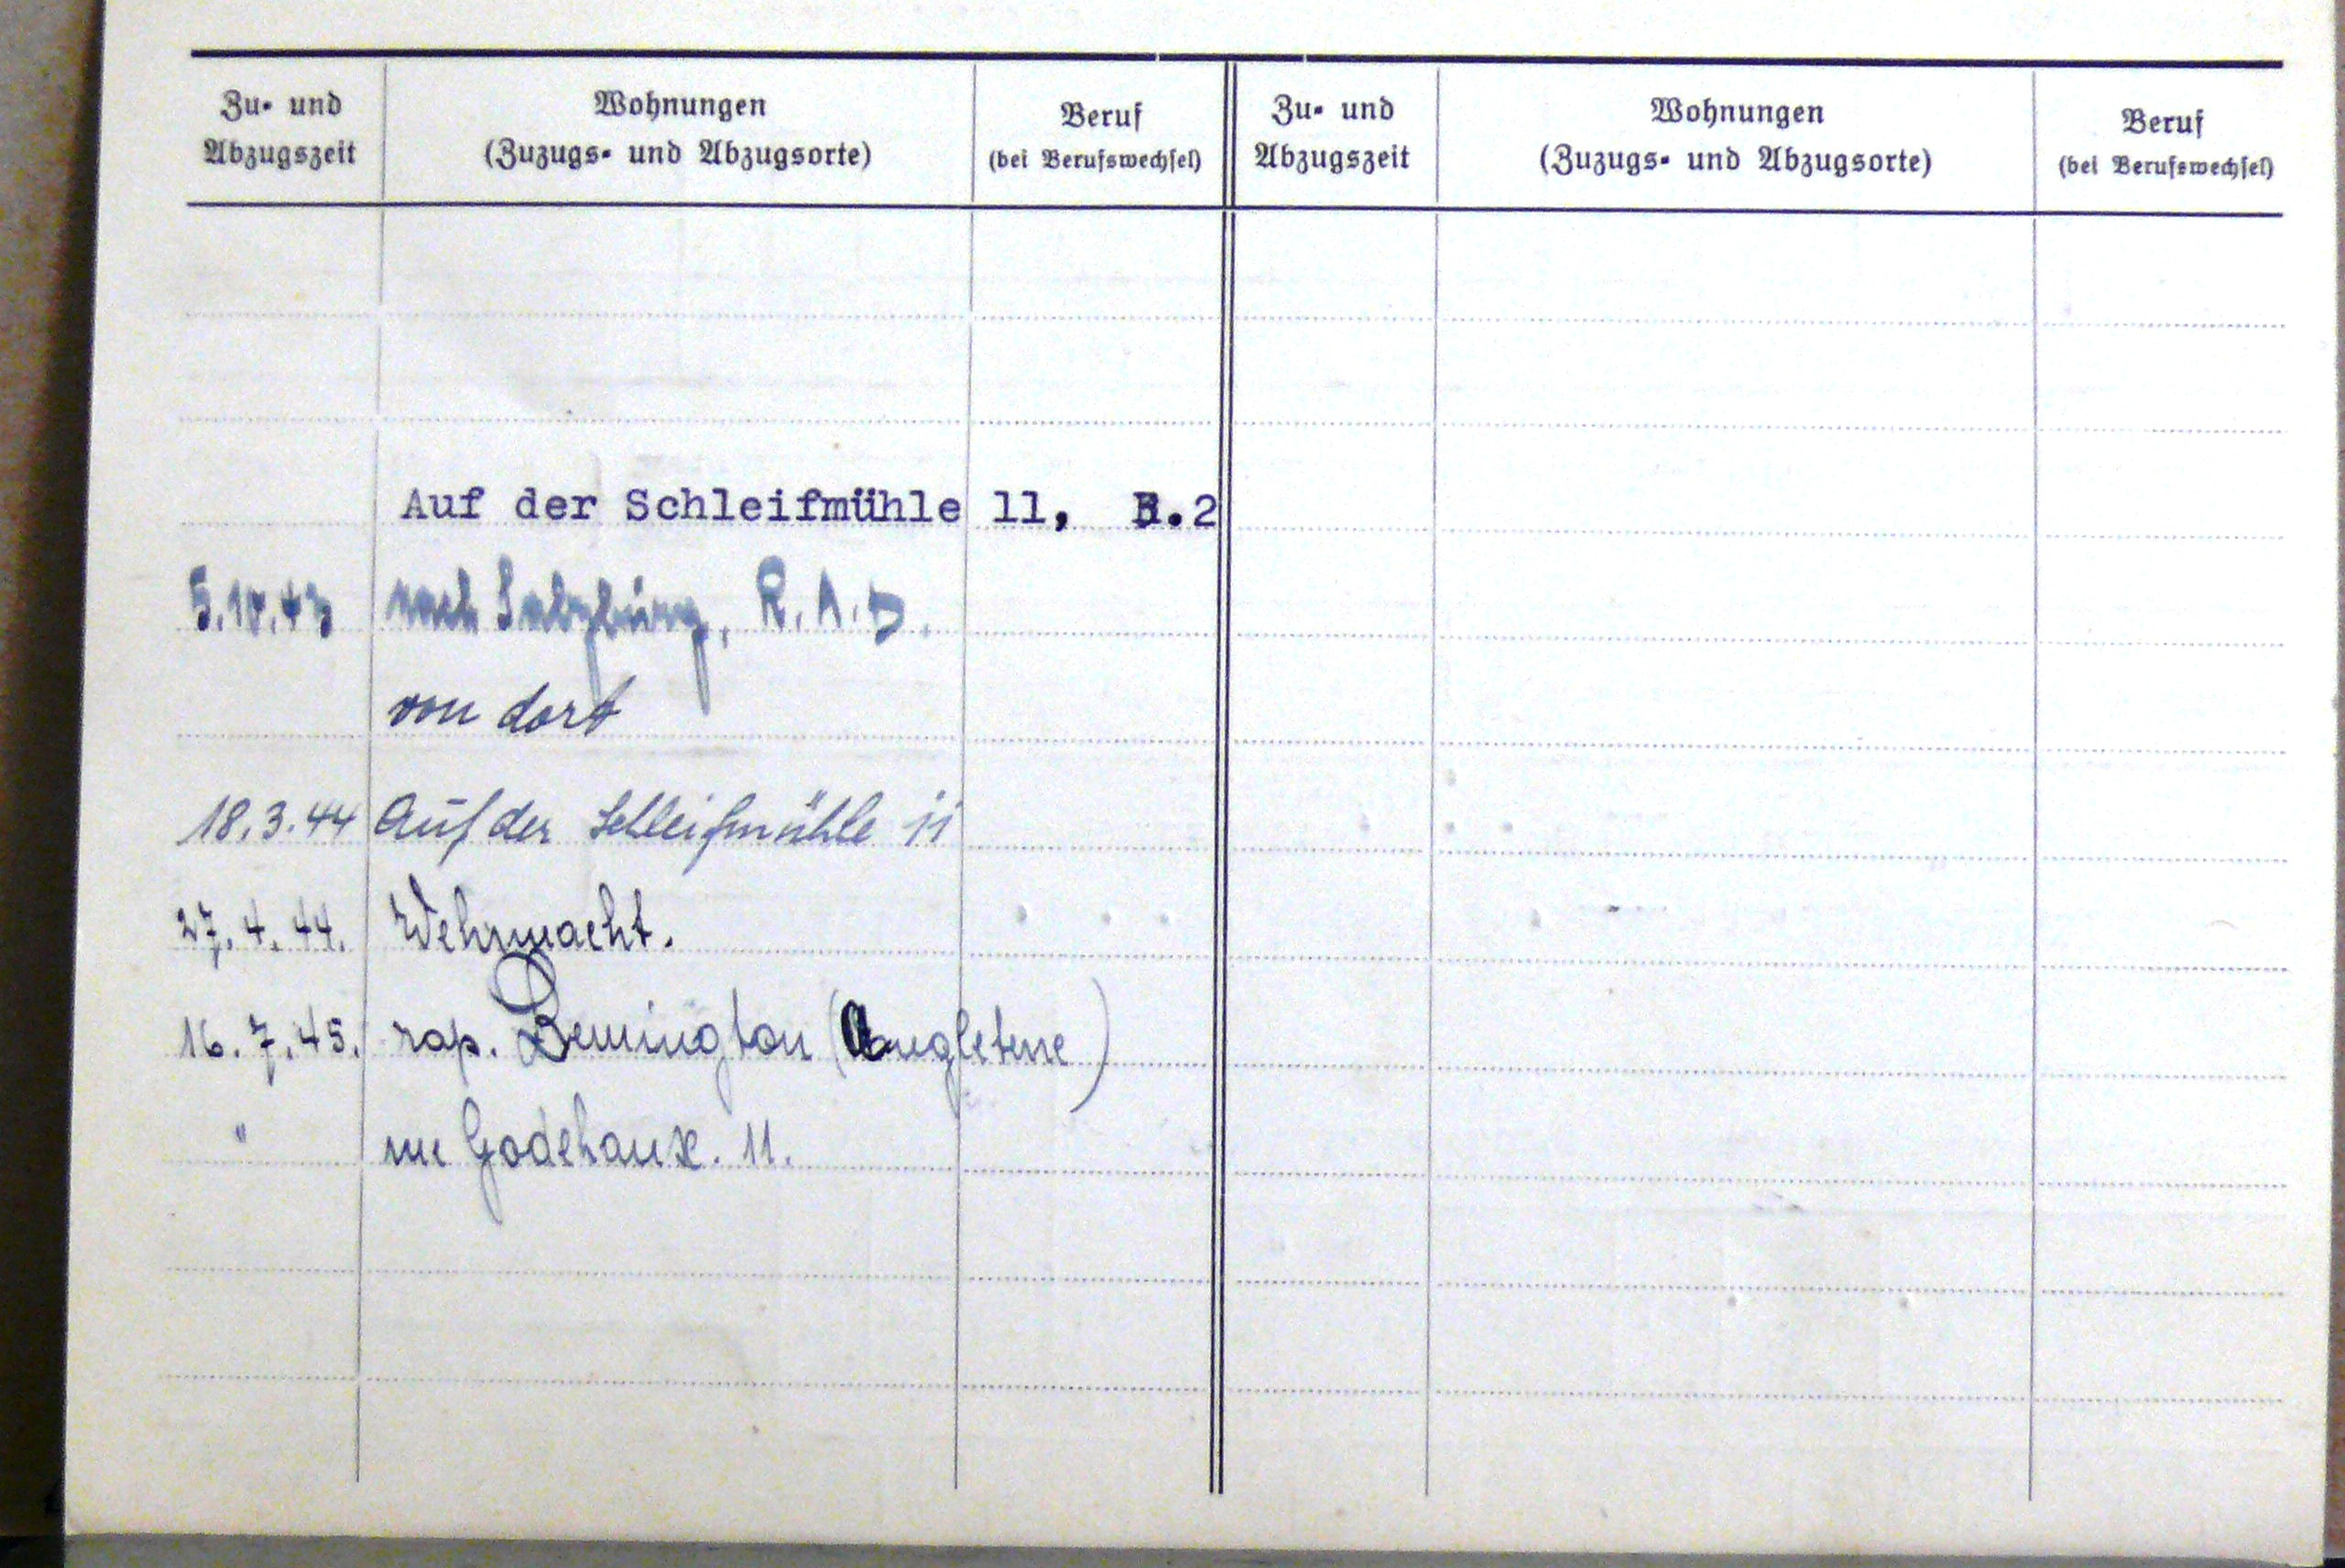 Zu- und Wohnungen Beruf Zu- und Wohnungen Beruf
Abzugszeit (Zuzugs- und Abzugsorte) (bei Berufswechsel) Abzugszeit (Zuzugs- und Abzugsorte) (bei Berufswechsel)
Auf der Schleifmühle 11, .2
nach Salzburg, R.A.D.
von dort
18.3.44 Auf der Schleifmühle 11
27.4.44. Wehrmacht.
16.7.45. rap. (Angleterre)
" rue Godehaux. 11.